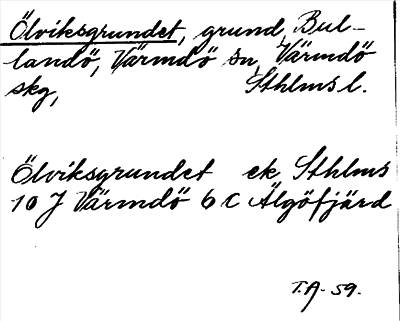 Ölviksgrundet, grund, Bul-
landö, Värmdö sn, Värmdö
skg, Sthlms l.
Ölviksgrundet ek Sthlms
10 J Värmdö 6 c Älgöfjärd
T.A. 59.